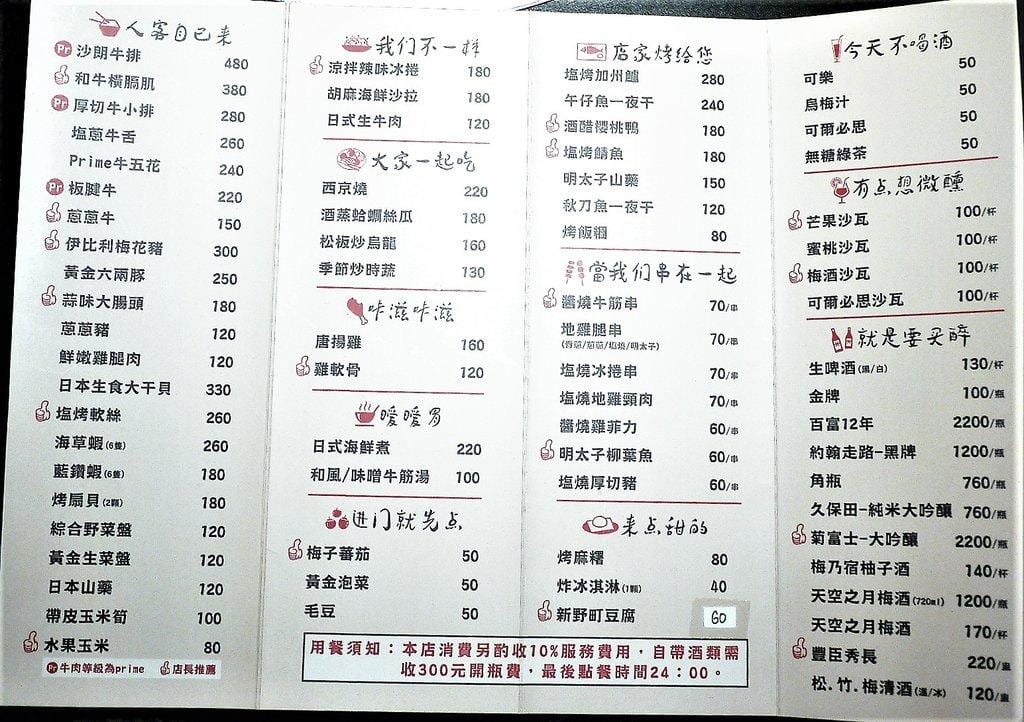 人客自己来
Pr 沙朗牛排 480
和牛橫膈肌 380
Pr 厚切牛小排 280
塩蔥牛舌 260
Prime牛五花 240
Pr 板腱牛 220
蔥蔥牛 150
伊比利梅花豬 300
黃金六兩豚 250
蒜味大腸頭 180
蔥蔥豬 120
鮮嫩雞腿肉 120
日本生食大干貝 330
塩烤軟絲 260
海草蝦(6隻) 260
藍鑽蝦(6隻) 180
烤扇貝(2顆) 180
綜合野菜盤 120
黃金生菜盤 120
日本山藥 120
帶皮玉米筍 100
水果玉米 80
Pr 牛肉等級為prime 店長推薦
我们不一样
涼拌辣味冰捲 180
胡麻海鮮沙拉 180
日式生牛肉 120
大家一起吃
西京燒 220
酒蒸蛤蜊絲瓜 180
松板炒烏龍 160
季節炒時蔬 130
咔滋咔滋
唐揚雞 160
雞軟骨 120
暧暧胃
日式海鮮煮 220
和風/味噌牛筋湯 100
进门就先点
梅子蕃茄 50
黃金泡菜 50
毛豆 50
店家烤给您
塩烤加州鱸 280
午仔魚一夜干 240
酒醋櫻桃鴨 180
塩烤鯖魚 180
明太子山藥 150
秋刀魚一夜干 120
烤飯糰 80
當我们串在一起
醬燒牛筋串 70/串
地雞腿串 70/串
(香蔥/蔥蔥/塩燒/明太子)
塩燒冰捲串 70/串
塩燒地雞頸肉 70/串
醬燒雞菲力 60/串
明太子柳葉魚 60/串
塩燒厚切豬 60/串
来点甜的
烤麻糬 80
炸冰淇淋(1顆) 40
新野町豆腐 60
用餐須知：本店消費另酌收10%服務費用，自帶酒類需
收300元開瓶費，最後點餐時間24：00。
今天不喝酒
可樂 50
烏梅汁 50
可爾必思 50
無糖綠茶 50
有点想微醺
芒果沙瓦 100/杯
蜜桃沙瓦 100/杯
梅酒沙瓦 100/杯
可爾必思沙瓦 100/杯
就是要买醉
生啤酒(黑/白) 130/杯
金牌 100/瓶
百富12年 2200/瓶
約翰走路-黑牌 1200/瓶
角瓶 760/瓶
久保田-純米大吟釀 760/瓶
菊富士-大吟釀 2200/瓶
梅乃宿柚子酒 140/杯
天空之月梅酒(720ml) 1200/瓶
天空之月梅酒 170/杯
豐臣秀長 220/壺
松.竹.梅清酒(溫/冰) 120/壺